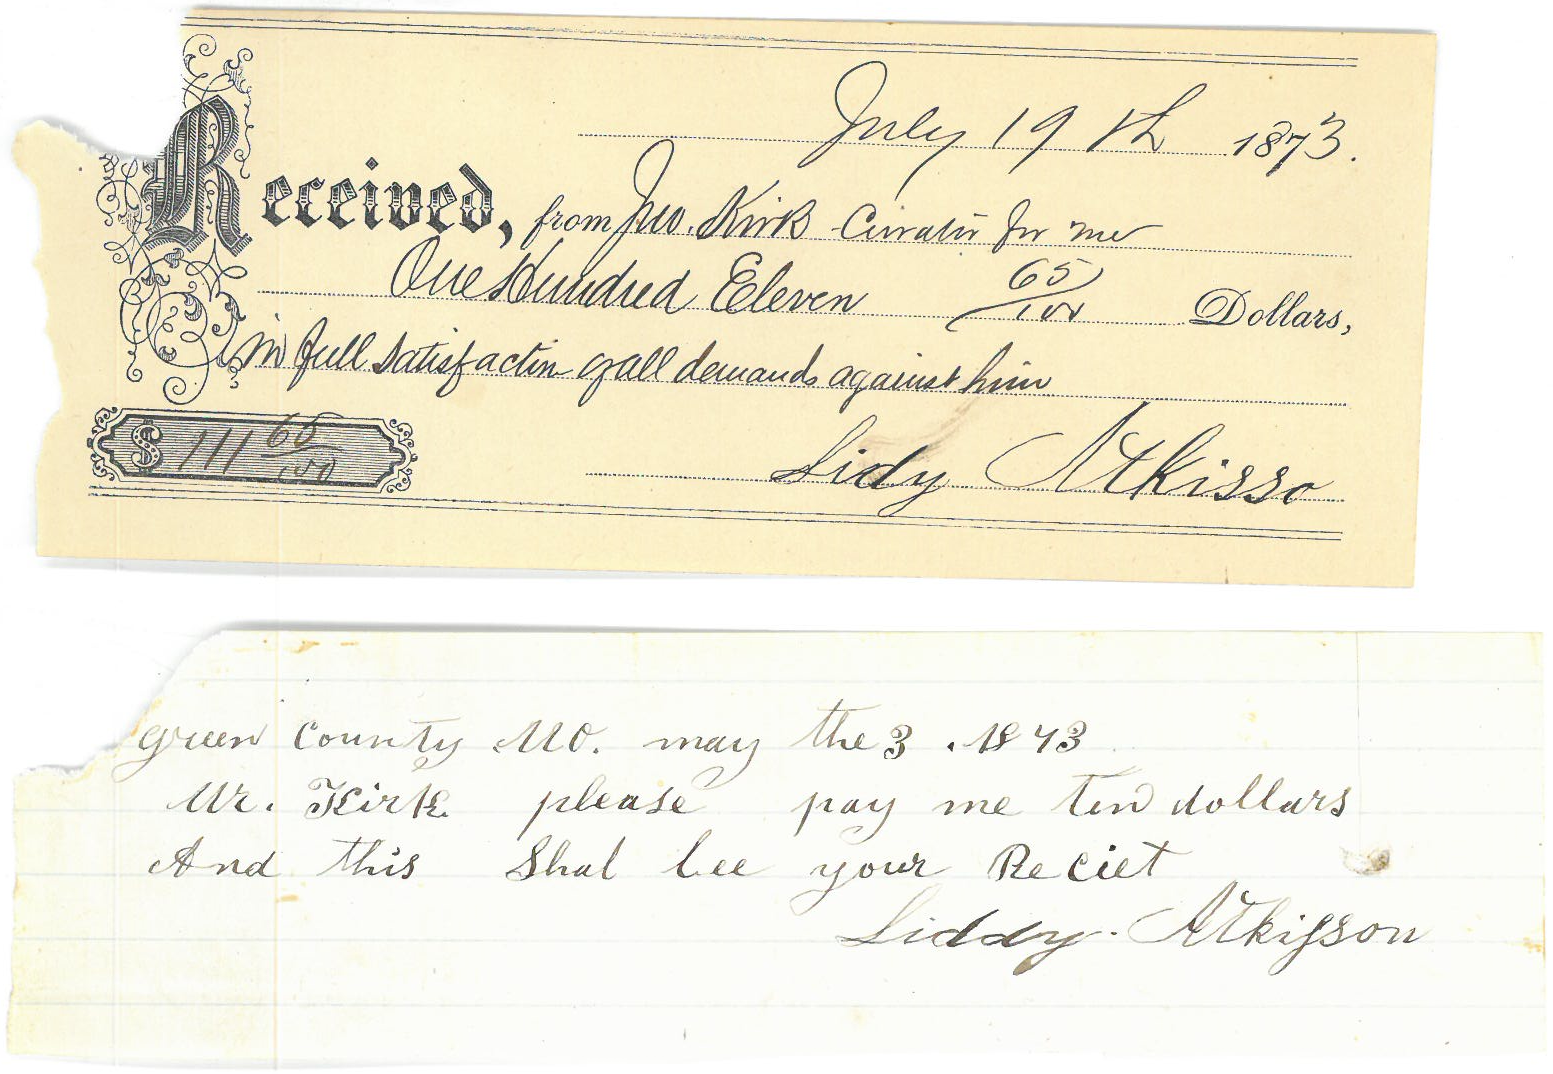 July 19th 1873.
Received, from Jno. Kirk Curator for me
One Hundred Eleven 65/100 Dollars,
in full satisfaction of all demands against him
$ 111 65/100
Lidy Atkisso
green county MO. may the 3. 1873
Mr. Kirk please pay me ten dollars
And this Shal bee your Reciet
Liddy Atkisson